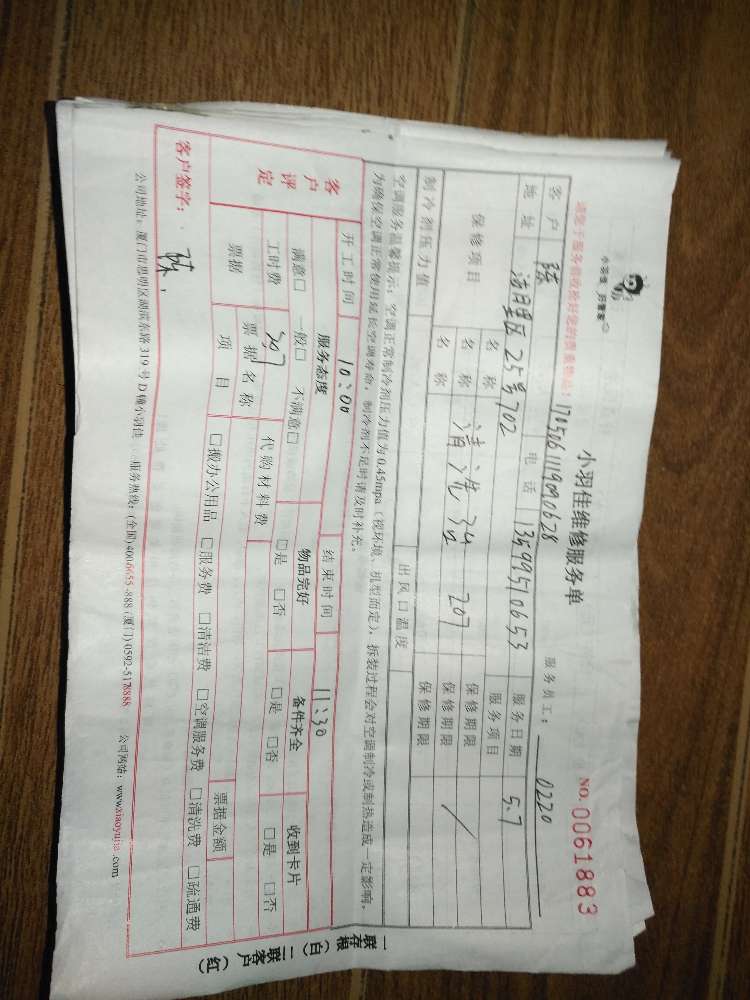 小羽佳 好管家
小羽佳维修服务单
NO. 0061883
请您于服务验收前对您的贵重物品: 1705061119090628 服务员工: 0220
客户 陈 电话 13599510653 服务日期 5.7
地址 洁月里区25号702 服务项目
保修项目 名称 保修期限
名称 清洗3台 207 保修期限 /
名称 保修期限
制冷剂压力值 出风口温度
空调服务温馨提示: 空调正常制冷剂压力值为0.45mpa (视环境、机型而定), 拆装过程会对空调制冷或制热造成一定影响,
为确保空调正常使用延长空调寿命, 制冷剂不足时请及时补充。
开工时间 10:00 结束时间 11:30
客户评定 服务态度 物品完好 备件齐全 收到卡片
满意□ 一般□ 不满意□ □是 □否 □是 □否 □是 □否
工时费 207 代购材料费
票据 票据名称 票据金额
项目 □搬办公用品 □服务费 □清洁费 □空调服务费 □清洗费 □疏通费
客户签字: 陈
公司地址: 厦门市思明区湖滨东路319号D幢小羽佳 服务热线: (全国)4006655-888 (厦门)0592-5178888 公司网站: www.xiaoyujia.com
一联存根 (白) 二联客户 (红)